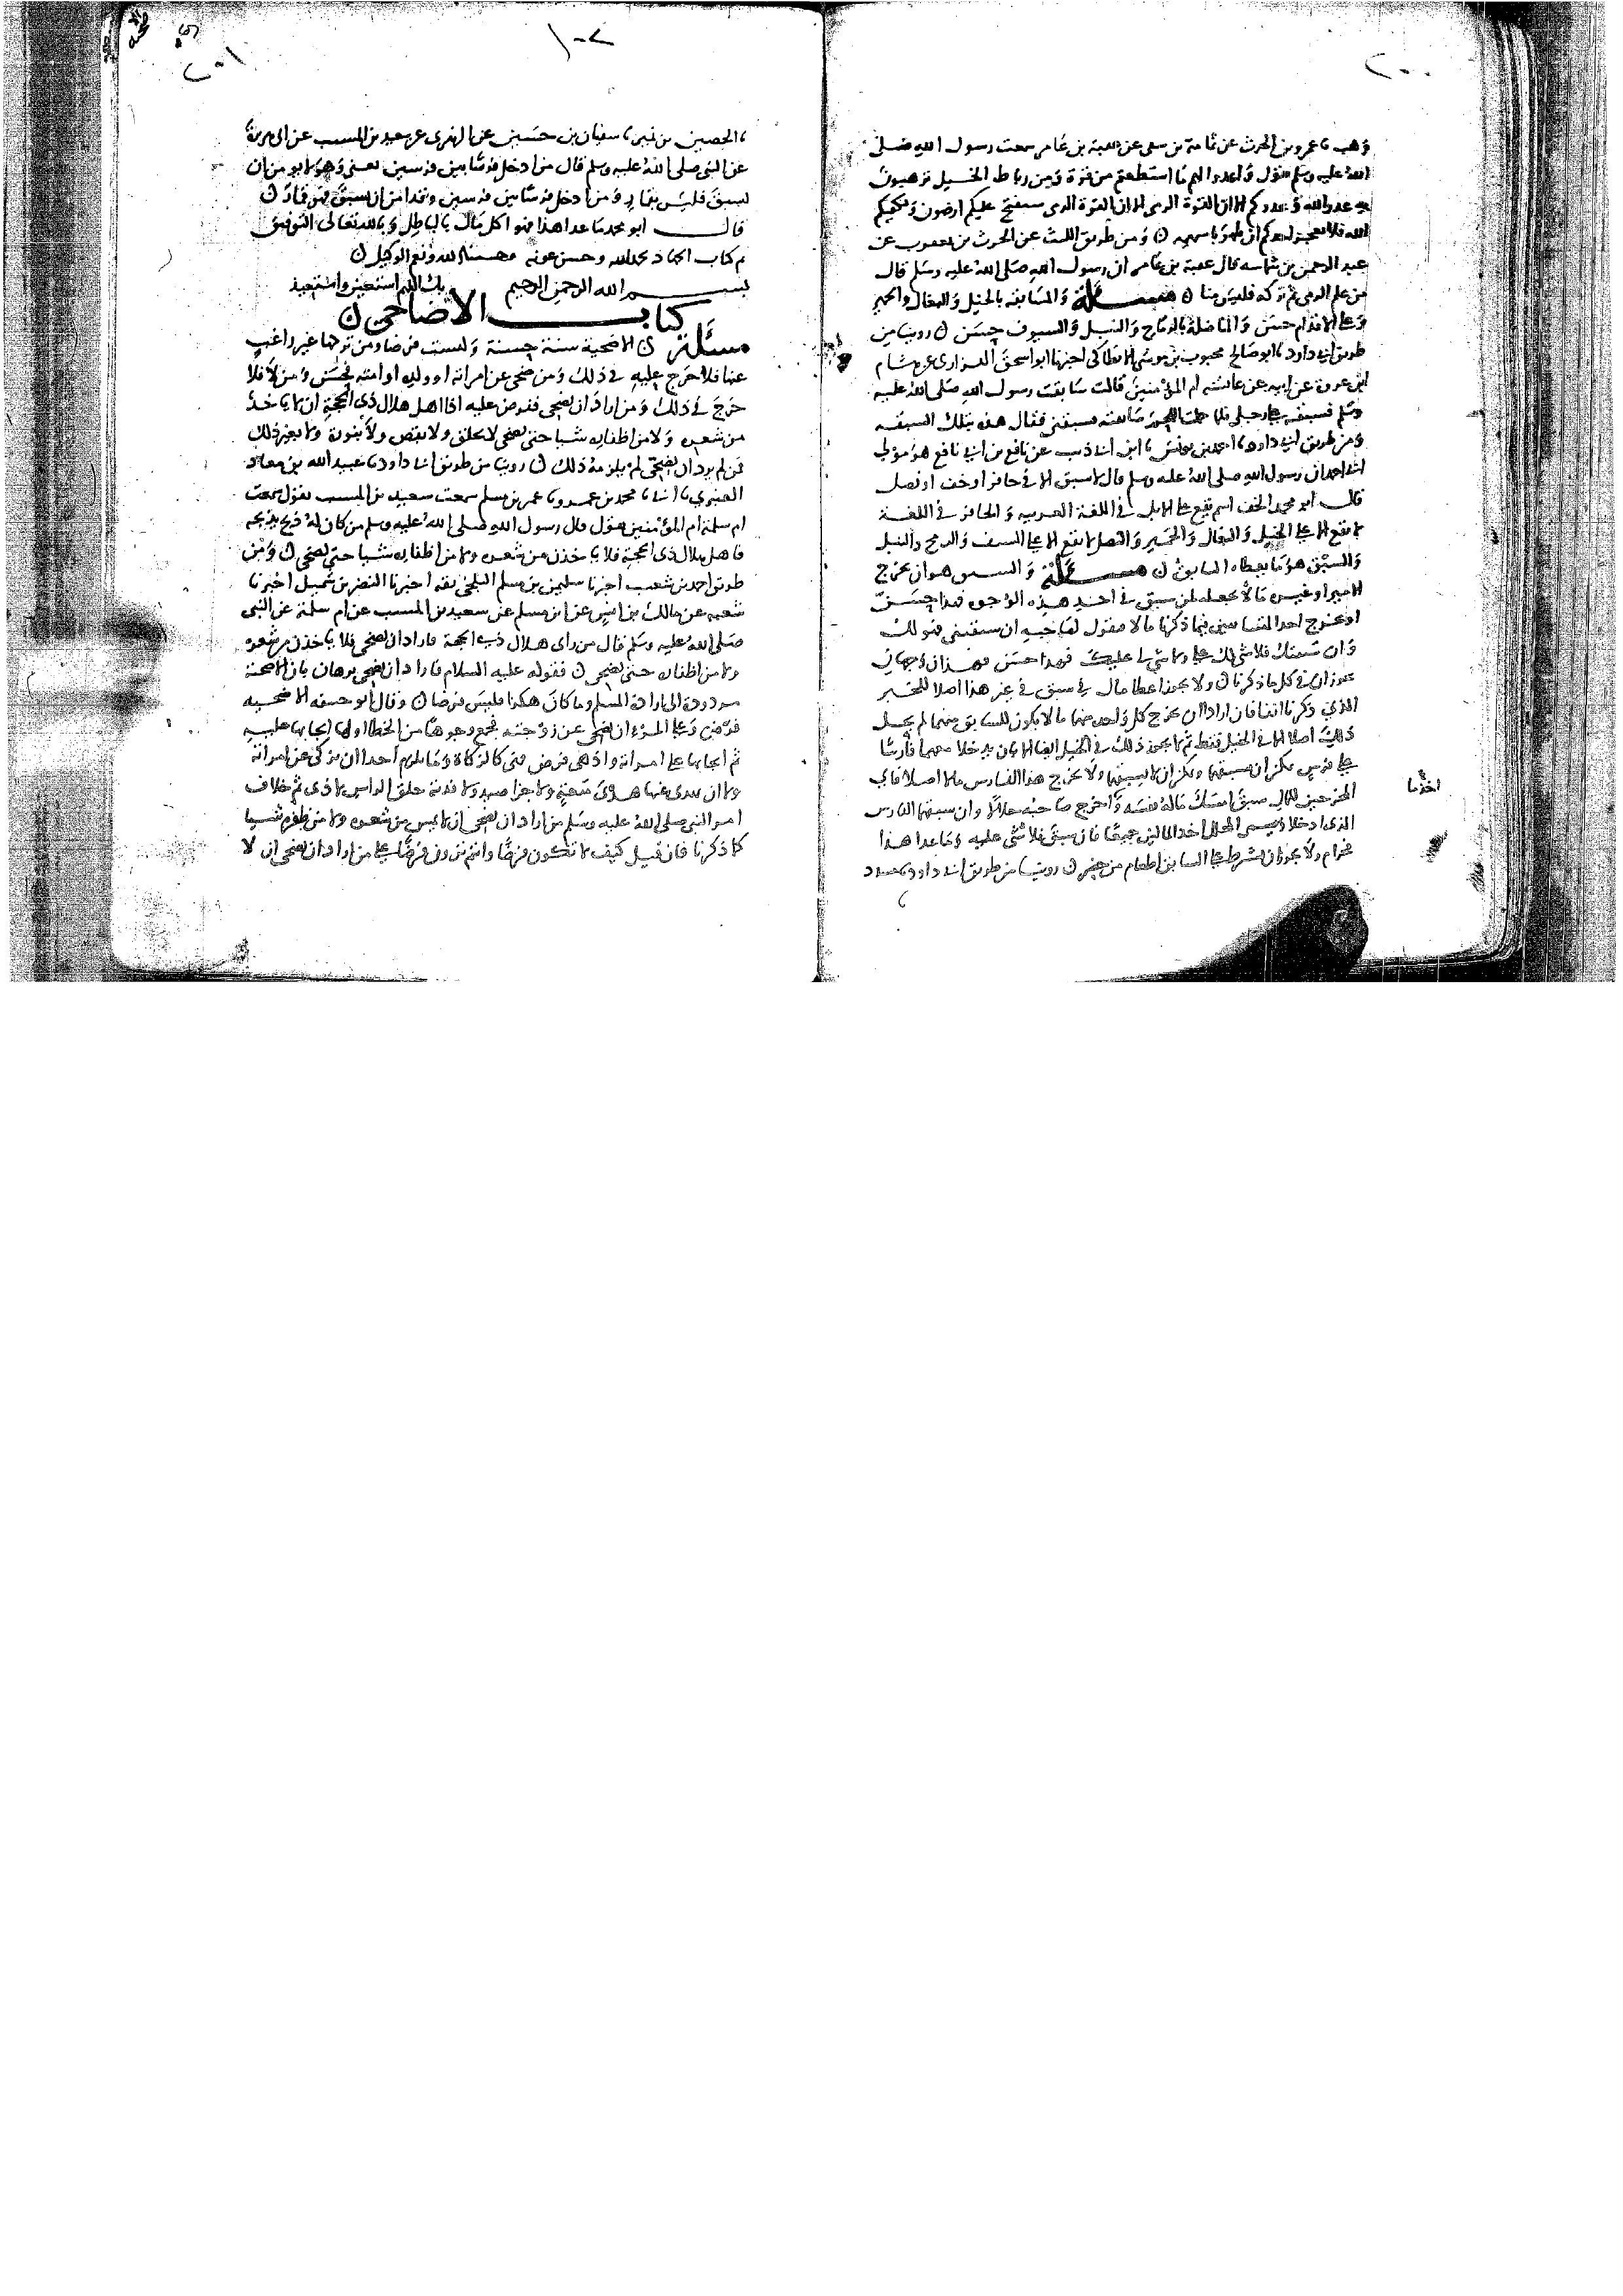 ٢٠٠
وهب نا عمرو بن الحرث عن ثمامة بن شفي عن عقبة بن عامر سمعت رسول الله صلى
الله عليه وسلم يقول وأعدوا لهم ما استطعتم من قوة ومن رباط الخيل ترهبون
به عدو الله وعدوكم الا ان القوة الرمى الا ان القوة الرمى ستفتح عليكم ارضون ويكفيكم
الله فلا يعجز احدكم ان يلهو باسهمه ن ومن طريق الليث عن الحرث بن يعقوب عن
عبد الرحمن بن شماسه قال عقبة بن عامر ان رسول الله صلى الله عليه وسلم قال
من علم الرمى ثم تركه فليس منا ن مسئلة والمسابقه بالخيل والبغال والحمير
وعلى الاقدام حسن والمناضلة بالرماح والنبل والسيوف حسن ن روينا من
طريق ابى داود نا ابو صالح محبوب بن موسى الانطاكى اخبرنا ابو اسحق الفزارى عن هشام
ابن عروة عن ابيه عن عائشه ام المؤمنين قالت سابقت رسول الله صلى الله عليه
وسلم فسبقته على رجلى فلما حملت اللحم سابقته فسبقنى فقال هذه بتلك السبقه
ومن طريق ابى داود نا احمد بن يونس نا ابن ابى ذئب عن نافع بن ابى نافع هو مولى
ابى احمد ان رسول الله صلى الله عليه وسلم قال لا سبق الا فى حافر او خف او نصل
قال ابو محمد الخف اسم يقع على الابل فى اللغة العربيه والحافر فى اللغة
لا يقع الا على الخيل والبغال والحمير والنصل لا يقع الا على السيف والرمح والنبل
والسبق هو ما يعطاه السابق ن مسئلة والسبق هو ان يخرج
الامير او غيره مالا يجعله لمن سبق فى احد هذه الوجوه فهذا حسن
او يخرج احد المتسابقين فيما ذكرنا مالا فيقول لصاحبه ان سبقتنى فهو لك
وان سبقتك فلا شى لك على ولا شى لى عليك فهذا حسن فهذان وجهان
يجوزان فى كل ما ذكرنا ن ولا يجوز اعطا مال فى سبق فى غير هذا اصلا للخبر
الذي ذكرنا انفا فان ارادا ان يخرج كل واحد منهما مالا يكون للسابق منهما لم يحل
ذلك اصلا الا فى الخيل فقط ثم لا يجوز ذلك فى الخيل ايضا الا بان يدخلا معهما فارسا
على فرس يمكن ان يسبقهما ويمكن ان لا يسبقهما ولا يخرج هذا الفارس مالا اصلا فاى
المخرجين للمال سبق امسك ماله نفسه واخرج صاحبه حلالا وان سبقهما الفارس
اخذا
الذى ادخلا ويسمى المحلل اخذ المالين جميعا فان سبق فلا شى عليه وما عدا هذا
فحرام ولا يجوز ان يشترط على السابق اطعام من حضر ن روينا من طريق ابى داود نا مسدد
٢٠١
١٠٢
نا الحصين بن نمير نا سفيان بن حسين عن الزهرى عن سعيد بن المسيب عن ابى هريرة
عن النبى صلى الله عليه وسلم قال من ادخل فرسا بين فرسين يعنى وهو لا يومن ان
يسبق فليس بقمار ومن ادخل فرسا بين فرسين وقد امن ان يسبق فهو قمار ن
قال ابو محمد ما عدا هذا فهو اكل مال بالباطل وبالله تعالى التوفيق
تم كتاب الجهاد بحمد الله وحسن عونه وحسبنا الله ونعم الوكيل ن
بسم الله الرحمن الرحيم بك اللهم استعين واستعيذ
كتاب الاضاحى ن
مسئلة ن الاضحية سنة حسنة وليست فرضا ومن تركها غير راغب
عنها فلا حرج عليه فى ذلك ومن ضحى عن امراته او ولده او امته فحسن ومن لا فلا
حرج فى ذلك ومن اراد ان يضحى ففرض عليه اذا اهل هلال ذى الحجة ان لا ياخذ
من شعره ولا من اظفاره شيا حتى يضحى لا بحلق ولا بقص ولا بنورة ولا بغير ذلك
ومن لم يرد ان يضحى لم يلزمه ذلك ن روينا من طريق ابى داود نا عبيد الله بن معاذ
العنبري نا ابى نا محمد بن عمرو نا عمر بن مسلم سمعت سعيد بن المسيب يقول سمعت
ام سلمة ام المؤمنين تقول قال رسول الله صلى الله عليه وسلم من كان له ذبح يذبحه
فاهل هلال ذى الحجة فلا ياخذن من شعره ولا من اظفاره شيا حتى يضحى ن ومن
طريق احمد بن شعيب اخبرنا سليمن بن مسلم البلخى ثقه اخبرنا النضر بن شميل اخبرنا
شعبه عن مالك بن انس عن ابن مسلم عن سعيد بن المسيب عن ام سلمة عن النبى
صلى الله عليه وسلم قال من راى هلال ذى الحجة فاراد ان يضحى فلا ياخذن من شعره
ولا من اظفاره حتى يضحى ن فقوله عليه السلام فاراد ان يضحى برهان بان الاضحية
مردودة الى ارادة المسلم وما كان هكذا فليس فرضا ن وقال ابو حنيفه الاضحيه
فرض وعلى المرء ان يضحى عن زوجته فجمع وجوها من الخطا اولها ايجابها عليه
ثم ايجابها على امراته واذ هى فرض فهى كالزكاة وما يلزم أحدا ان يزكى عن امراته
ولا ان يهدى عنها هدى متعة ولا جزا صيد ولا فدية حلق الراس لاذى ثم خلاف
امر النبى صلى الله عليه وسلم من اراد ان يضحى ان لا يمس من شعره ولا من ظفره شيا
كما ذكرنا فان قيل كيف لا تكون فرضا وانتم ترون فرضا على من اراد ان يضحى ان لا